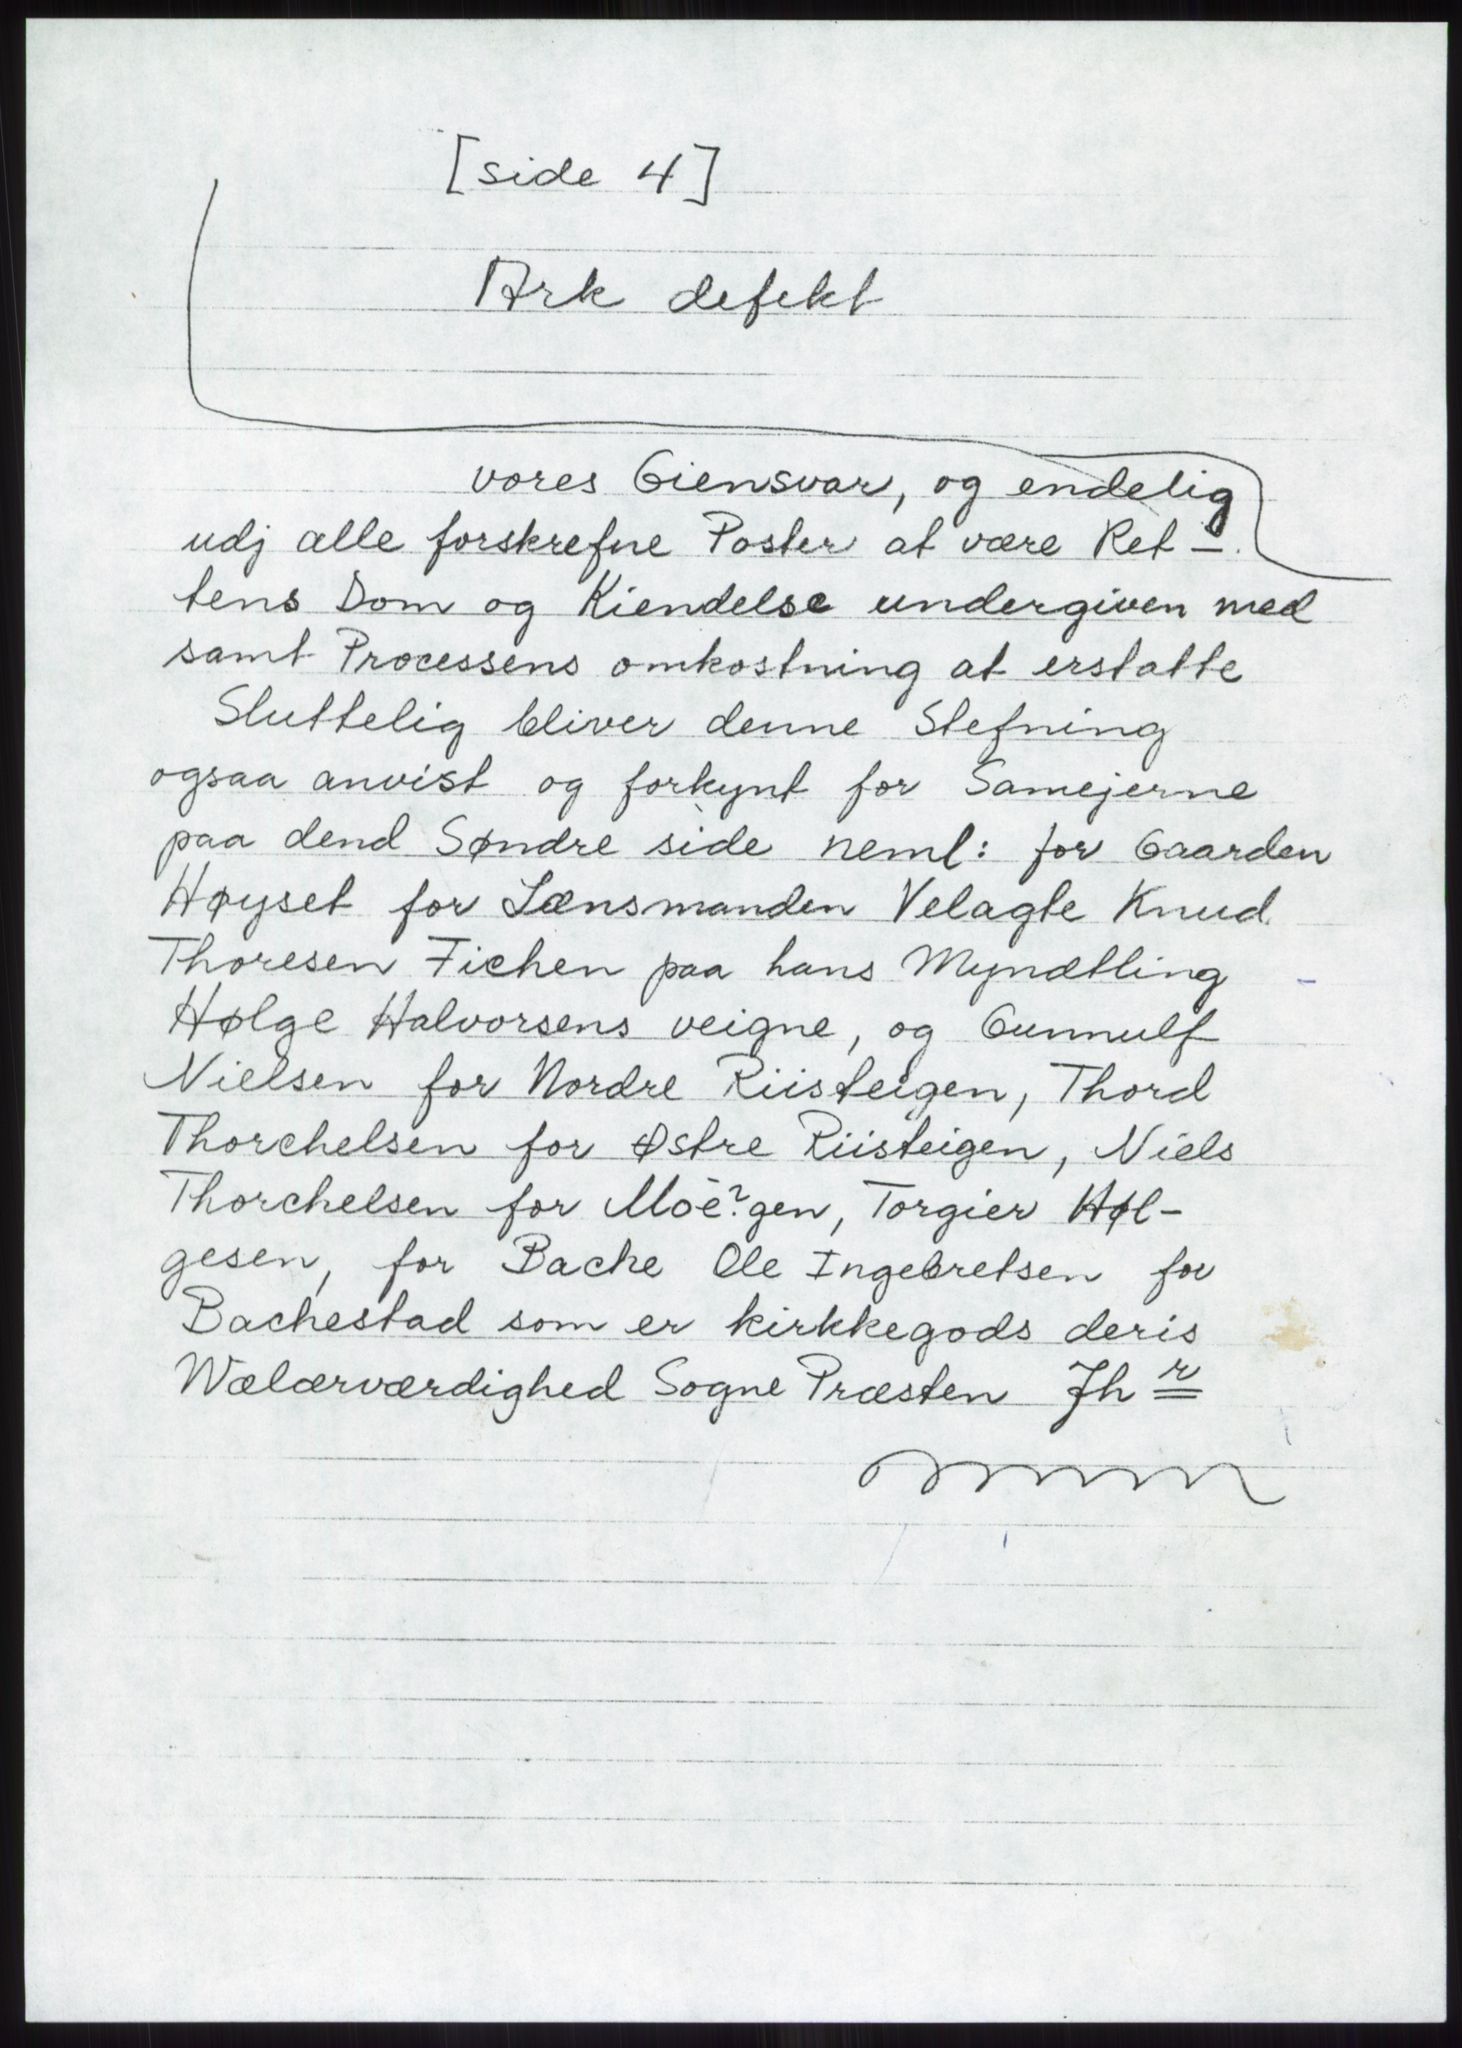 [side 4]
Ark defekt
vores Giensvar, og endelig
udj alle forskrefne Poster at være Ret-
tens Dom og Kiendelse undergiven med
samt Processens omkostning at erstatte
Sluttelig bliver denne Stefning
ogsaa anvist og forkynt for Samejerne
paa dend Søndre side neml: for Gaarden
Høyset for Lænsmanden Velagte Knud
Thoresen Fichen paa hans Myndtling
Hølge Halvorsens veigne, og Gunnulf
Nielsen for Nordre Riisteigen, Thord
Thorchelsen for Østre Riisteigen, Niels
Thorchelsen for Moe?gen, Torgier Høl-
gesen, for Bache Ole Ingebretsen for
Bachestad som er kirkkegods deris
Wælærværdighed Sogne Præsten Jh r